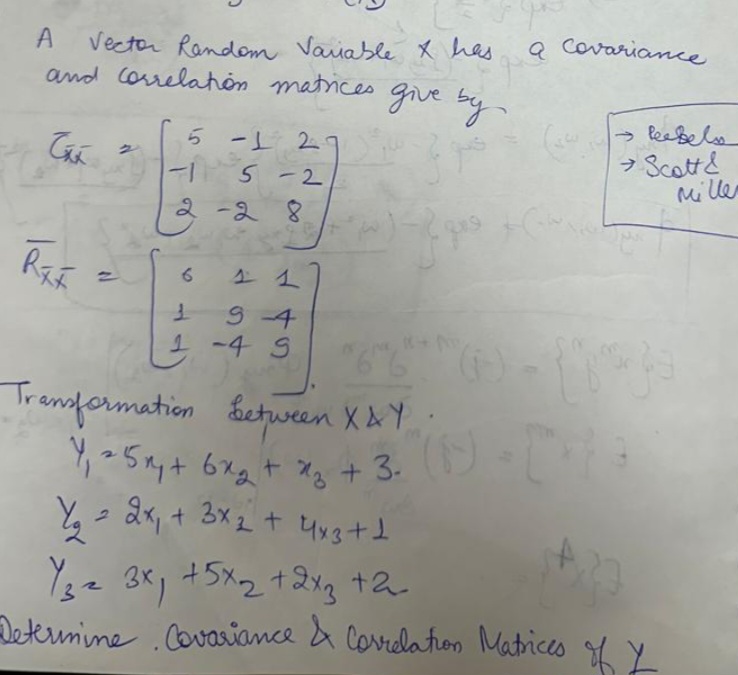 A Vector Random Variable X has a covariance
and Correlation matrices give by
C̄_X̄X̄ = [ 5 -1 2
-1 5 -2
2 -2 8 ]
→ Peebels
→ Scott &
Mille
R̄_X̄X̄ = [ 6 1 1
1 9 -4
1 -4 9 ]
Transformation between X & Y.
Y₁ = 5x₁ + 6x₂ + x₃ + 3.
Y₂ = 2x₁ + 3x₂ + 4x₃ + 1
Y₃ = 3x₁ + 5x₂ + 2x₃ + 2
Determine. Covariance & Correlation Matrices of Y